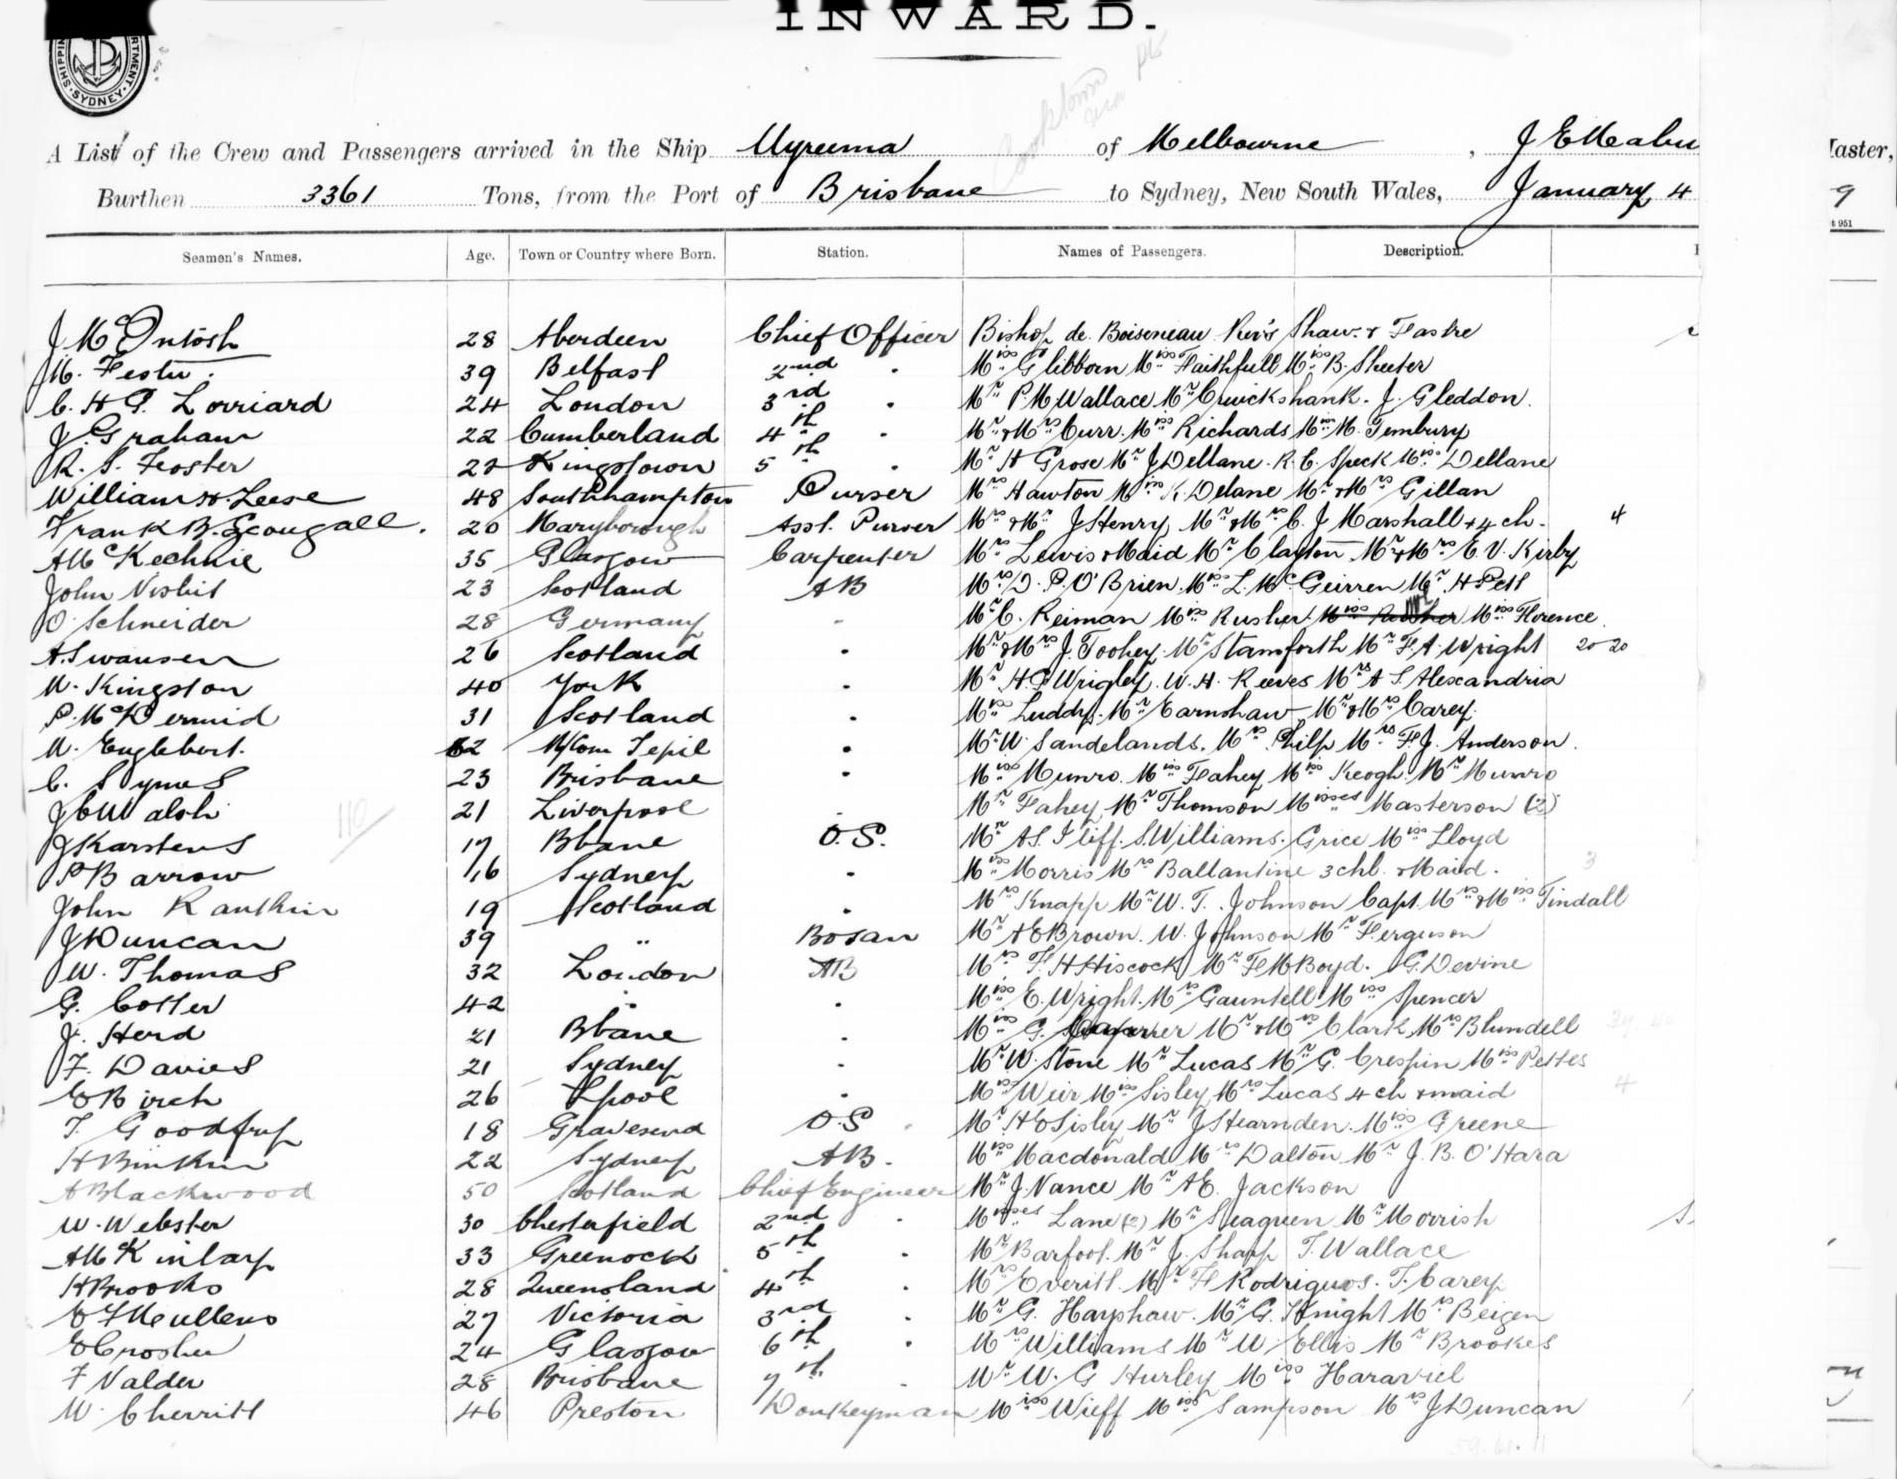 INWARD.
SHIPPING DEPARTMENT. SYDNEY.
Cooktown
A List of the Crew and Passengers arrived in the Ship Wyreema of Melbourne, J E Meabu Master,
Burthen 3361 Tons, from the Port of Brisbane to Sydney, New South Wales, January 4 9
Seamen's Names. Age. Town or Country where Born. Station. Names of Passengers. Description.
J McIntosh 28 Aberdeen Chief Officer Bishop de Boiseneau Revs Shaw & Fastre
39 Belfast 2nd " Miss Glibborn Miss Faithfull Miss B. Sheeter
C. H G. Lorriard 24 London 3rd " Mr P M Wallace Mr Cruickshank. J. Gleddon.
J. Graham 22 Cumberland 4th " Mr & Mrs Curr. Miss Richards Miss M. Tembury
R. S. Feoster 22 Kingstown 5th " Mr H Grose Mr J Dellane. R. C. Speck Miss Dellane
William H. Leese 48 Southhampton Purser Mrs Hawton Miss K. Delane Mr & Mrs Gillan
Frank B. Scougall. 20 Maryborough Asst. Purser Mrs & Mr J Henry Mr & Mrs C. J Marshall & 4 ch. 4
A McKechnie 35 Glasgow Carpenter Mrs Lewis & Maid Mr Clayton Mr & Mrs E. V. Kirby
John Nisbit 23 Scotland AB Mrs D. P. O'Brien. Miss L. McGeirren Mr H Pett
O. Schneider 28 Germany " Mr C. Reiman Miss Rusher Miss Rusher Miss Florence
A. Swansen 26 Scotland " Mr & Mrs J. Toohey. Mr Stamforth Mr F. A. Wright 20 20
W. Kingston 40 York " Mr H P Wrigley. W. H. Reeves Mrs A S. Alexandria
P. McDermid 31 Scotland " Miss Luddy. Mr Earnshaw Mr & Mrs Carey
W. Englebert. " Mr W. Sandelands. Mrs Philp Mrs F. J. Anderson.
C. Symes 23 Brisbane " Miss Munro. Miss Fahey Miss Keogh. Mr Munro
J C Walsh 21 Liverpool " Mr Fahey Mr Thomson Misses Masterson (2)
110
J Karstens 17 Bbane O.S. Mr A S. Iliff. S. Williams. Grice Miss Lloyd
P Barrow 16 Sydney " Miss Morris Mrs Ballantine 3 chl. & Maid. 3
John Rankin 19 Scotland " Mrs Knapp Mr W. T. Johnson Capt. Mrs & Miss Tindall
J Duncan 39 " Bosan Mr A E Brown. W. Johnson Mr Ferguson
W. Thomas 32 London AB Mrs F. H Hiscock Mr F M Boyd. G. Devine
G. Cotter 42 " " Miss E. Wright. Mrs Gauntell Miss Spencer
J. Herd 21 Bbane " Miss G. Mr & Mrs Clark Mrs Blundell
F. Davies 21 Sydney " Mr W. Stone Mr Lucas Mr G. Crespin Miss Pettes
E Birch 26 Lpool " Miss Weir Miss Sisley Mrs Lucas 4 ch & maid 4
T. Goodfrup 18 Gravesend O.S " Mr H E Sisley Mr J Hearnden. Miss Greene
H Binkin 22 Sydney AB. Miss Macdonald Mrs Dalton Mr J. B. O'Hara
A Blackwood 50 Scotland Chief Engineer Mr J. Vance Mr A E. Jackson
W. Webster 30 Chesterfield 2nd " Misses Lane (2) Mr Seagreen Mr Morrish
A McKinlay 33 Greenock 5th " Mr Barfoot. Mr J. Sharp T. Wallace
H Brooks 28 Queensland 4th " Mrs Everitt. Mr F Rodriguos. T. Carey
E F Meullens 27 Victoria 3rd " Mr G. Hayshaw. Mr G. Knight Mrs Beigen
E Crosher 24 Glasgow 6th " Mrs Williams Mr W Ellis Mr Brookes
F Valder 28 Brisbane 7th " Mr W. G Hurley Miss Hararviel
W. Cherritt 46 Preston Donkeyman Miss Wieff Miss Sampson Mrs J Duncan